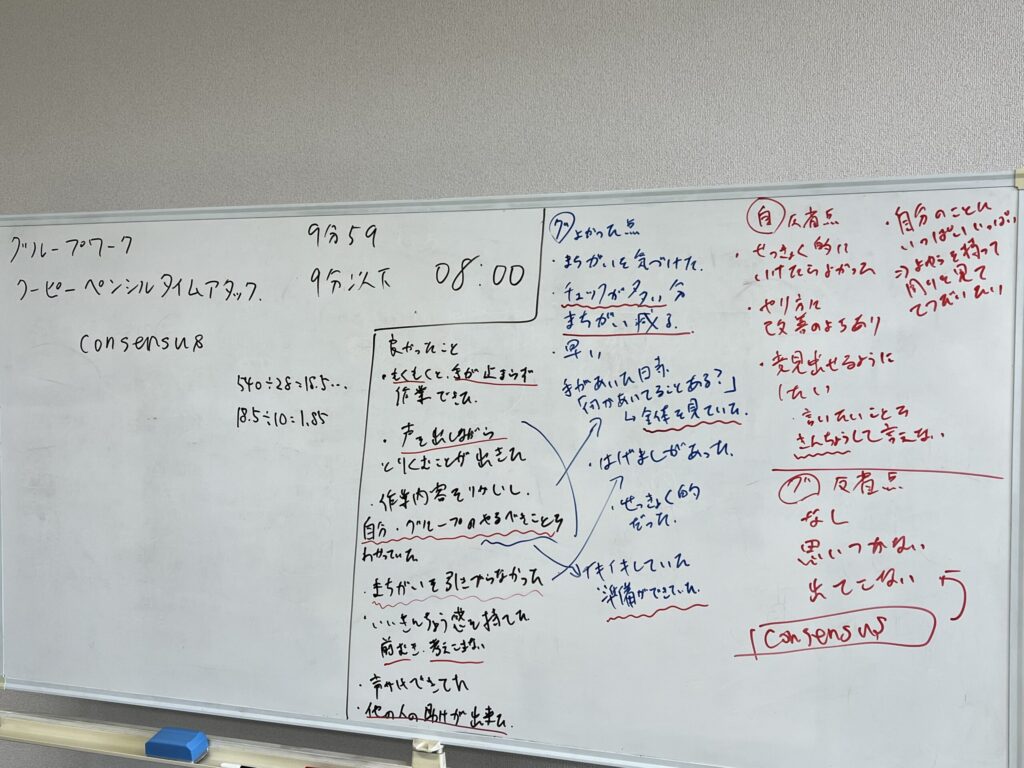 グループワーク
9分59
クーピーペンシルタイムアタック.
9分以下
08:00
consensus
540÷28=18.5…
18.5÷10=1.85
良かったこと
・もくもくと、手が止まらず
作業できた.
・声を出しながら
とりくむことが出きた
・作業内容をりかいし.
自分・グループのやるべきことを
わかっていた
・まちがいを引きずらなかった
・いいきんちょう感を持てた
前むき、考えこまない
・声かけできてた
・他の人の助けが出来た.
グ よかった点
・まちがいを気づけた.
・チェックが多い分
まちがい減る.
・早い
手があいた日寺.
「何かあいてることある?」
↳全体を見ていた.
・はげましがあった.
・せっきょく的
だった.
イキイキしていた
準備ができていた.
自 反省点
・せっきょく的に
いけたらよかった
・やり方に
改善のよちあり
・意見出せるように
したい
・言いたいことを
きんちょうして言えない
・自分のことに
いっぱいいっぱい
⇒よゆうを持って
周りを見て
てつだいたい
グ 反省点
なし
思いつかない
出てこない
consensus